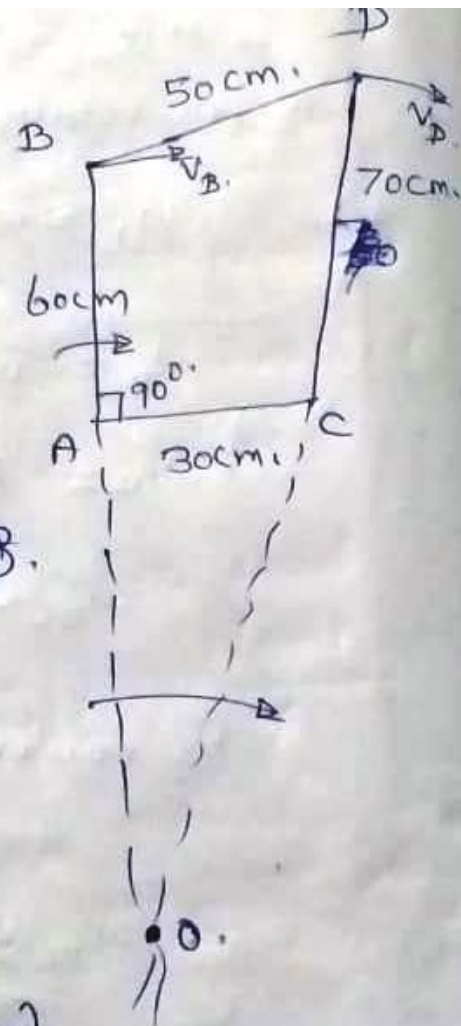 D
50cm.
B
V_D.
V_B.
70cm.
60cm
90°.
A
C
30cm.
B.
O.